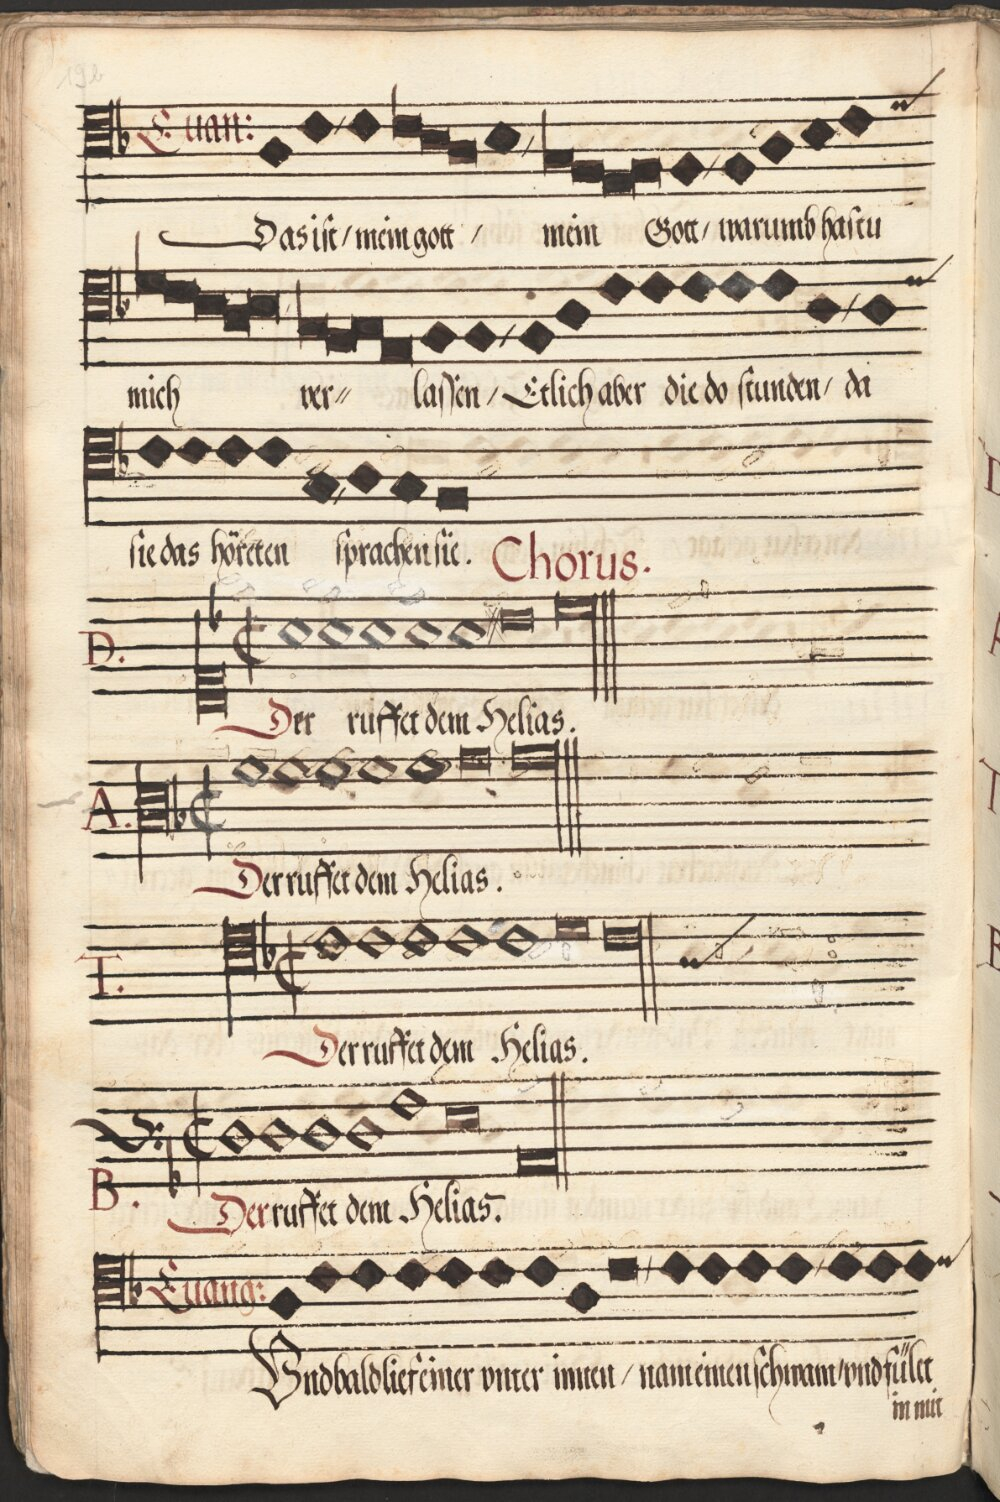 192
Euan:
Das ist / mein gott / mein Gott / warumb hastu
mich ver= lassen / Etlich aber die do stunden / da
sie das höreten sprachen sie. Chorus.
D.
Der ruffet dem Helias.
A.
Der ruffet dem Helias.
T.
Der ruffet dem Helias.
B.
Der ruffet dem Helias.
Euang:
Vnd bald lief einer vnter innen / nam einen schwam / vnd fület
in mit